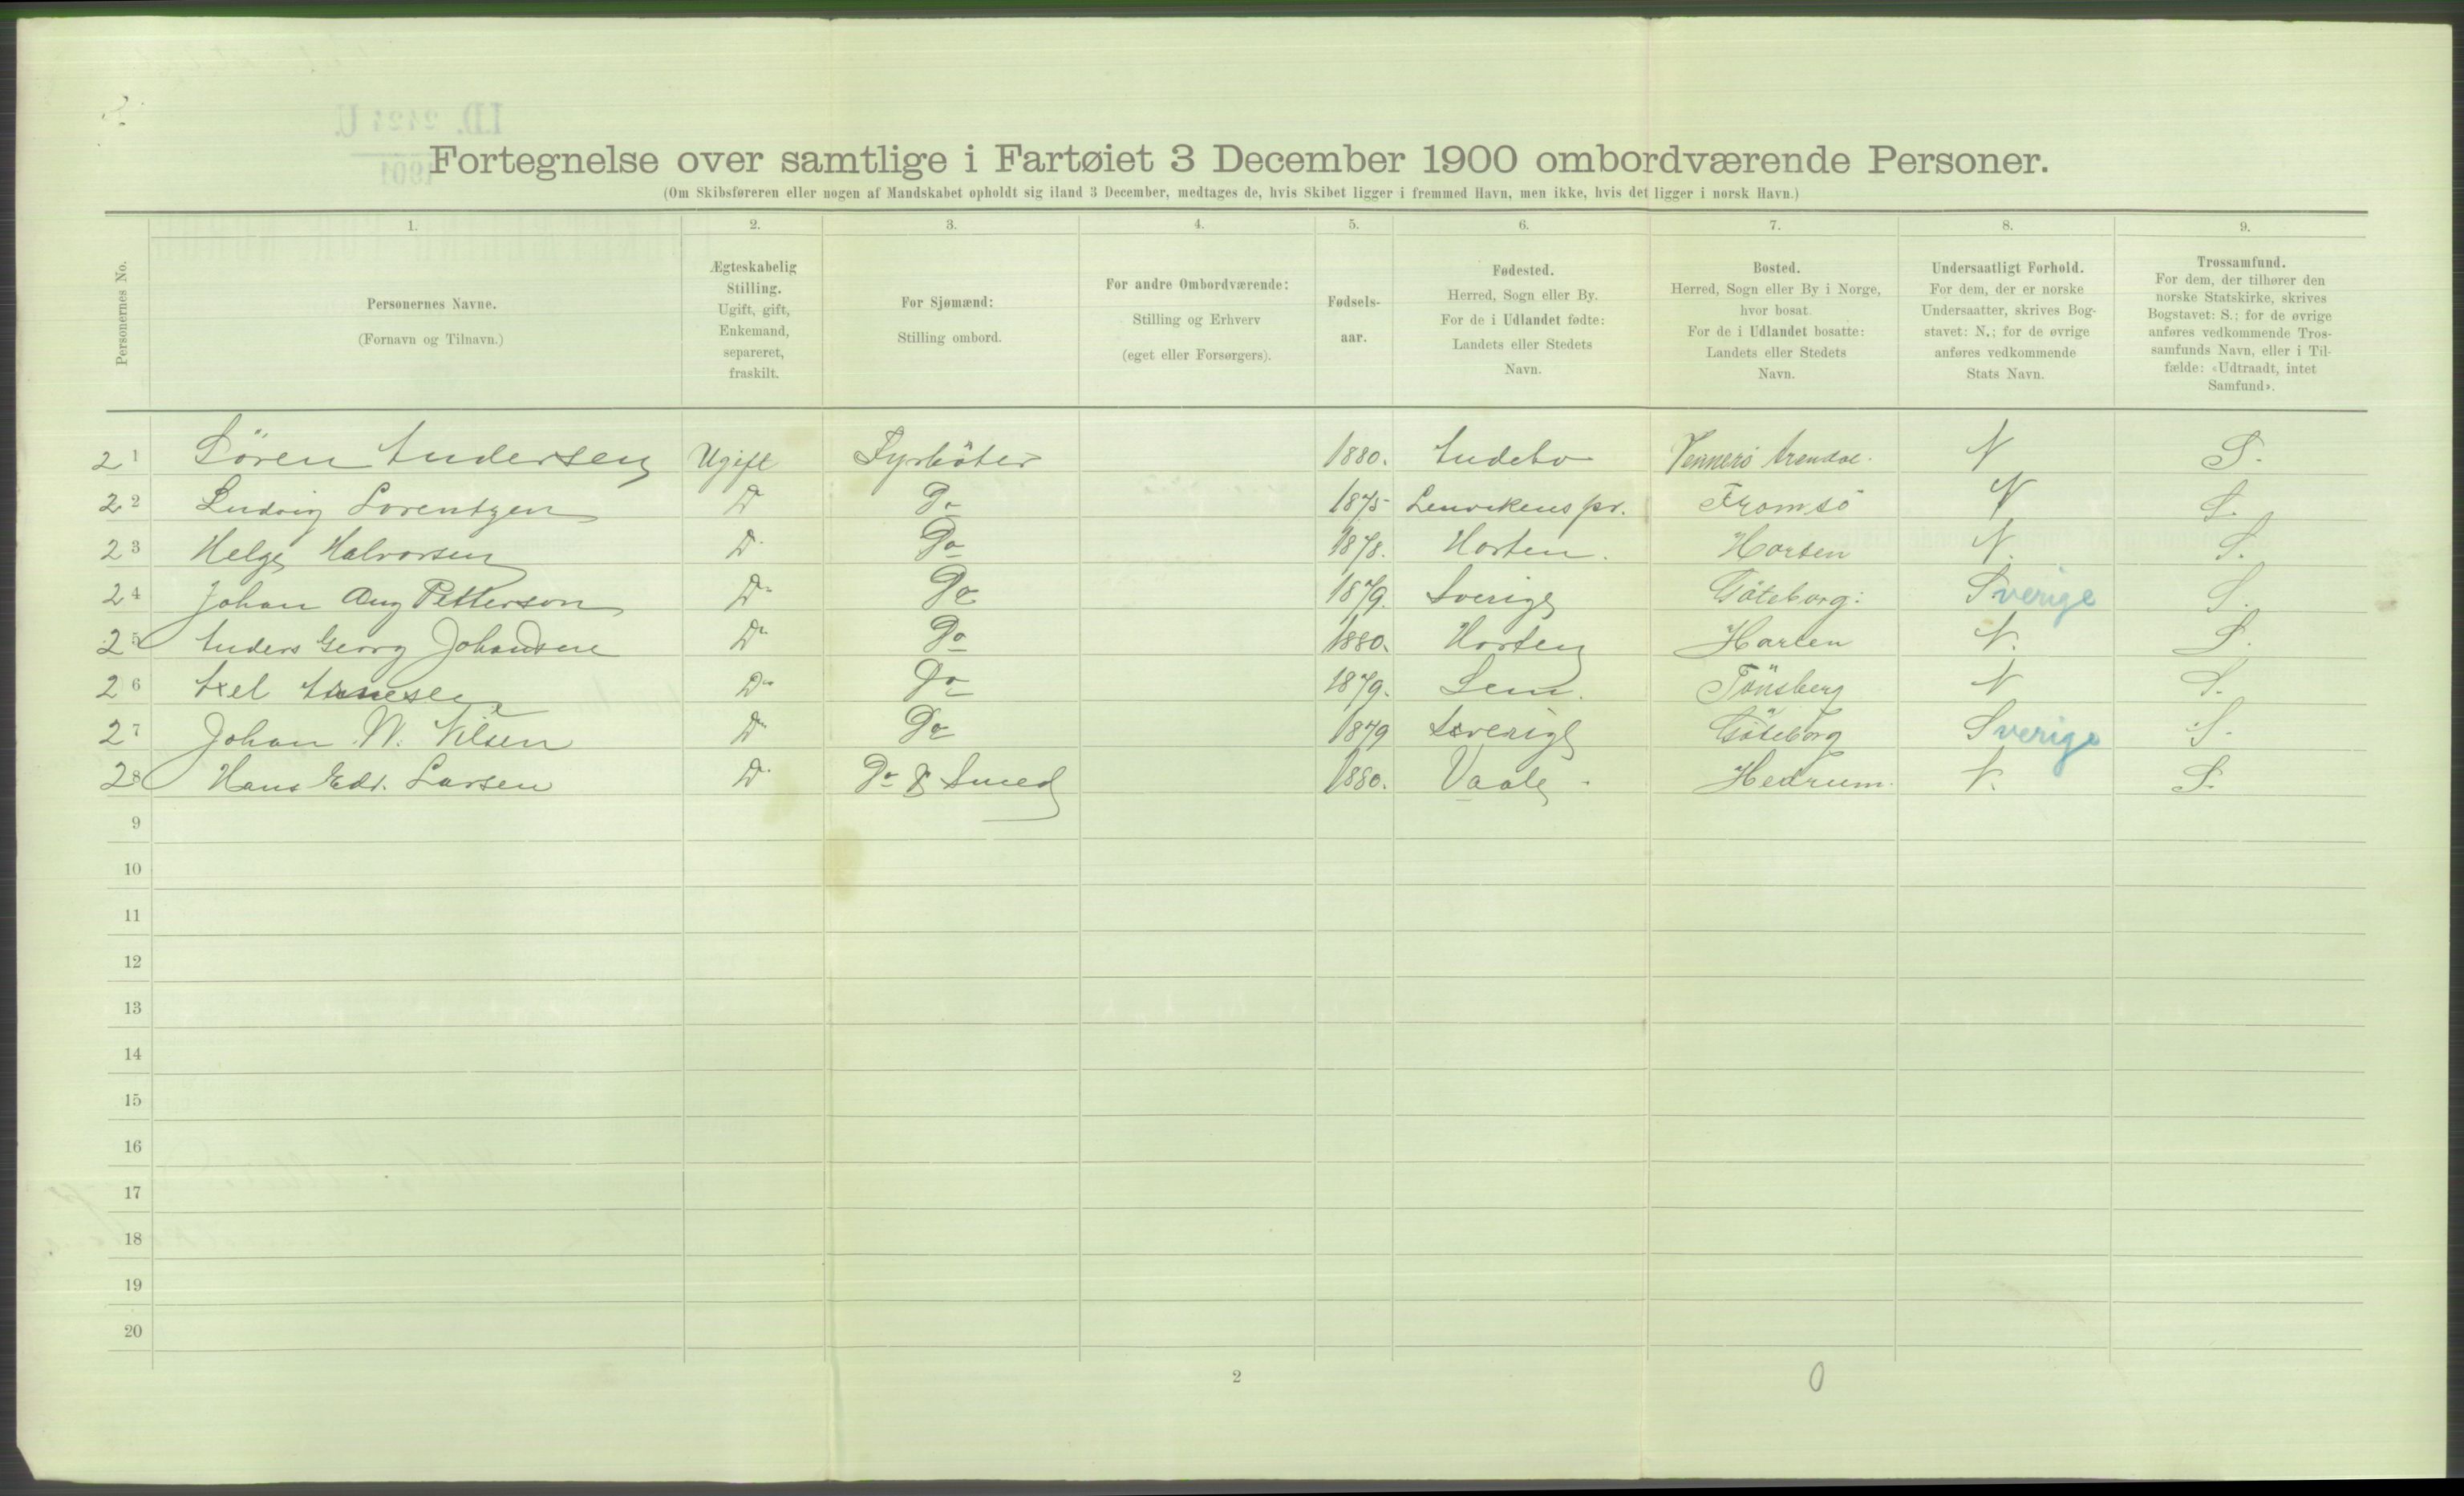 Fortegnelse over samtlige i Fartøiet 3 December 1900 ombordværende Personer.
(Om Skibsføreren eller nogen af Mandskabet opholdt sig iland 3 December, medtages de, hvis Skibet ligger i fremmed Havn, men ikke, hvis det ligger i norsk Havn.)
Personernes No.
1. 2. 3. 4. 5. 6. 7. 8. 9.
Personernes Navne.
(Fornavn og Tilnavn.)
Ægteskabelig
Stilling.
Ugift, gift,
Enkemand,
separeret,
fraskilt.
For Sjømænd:
Stilling ombord.
For andre Ombordværende:
Stilling og Erhverv
(eget eller Forsørgers).
Fødsels-
aar.
Fødested.
Herred, Sogn eller By.
For de i Udlandet fødte:
Landets eller Stedets
Navn.
Bosted.
Herred, Sogn eller By i Norge,
hvor bosat.
For de i Udlandet bosatte:
Landets eller Stedets
Navn.
Undersaatligt Forhold.
For dem, der er norske
Undersaatter, skrives Bog-
stavet: N.; for de øvrige
anføres vedkommende
Stats Navn.
Trossamfund.
For dem, der tilhører den
norske Statskirke, skrives
Bogstavet: S.; for de øvrige
anføres vedkommende Tros-
samfunds Navn, eller i Til-
fælde: «Udtraadt, intet
Samfund».
21 Sören Andersen Ugift Fyrböter 1880. Andebo Arendal. N S.
22 Ludvig Lorentzen Do Do 1875 Lenvikens pr. Tromsö N S.
23 Helge Halvorsen Do Do 1878. Horten. Horten N. S.
24 Johan Aug Petterson Do Do 1879. Sverige Göteborg: Sverige S.
25 Anders Georg Johansen Do Do 1880. Horten Horten N. S.
26 Axel Do Do 1879. Sem. Tönsberg N S.
27 Johan N. Nilsen Do Do 1879 Sverige Göteborg Sverige S.
28 Hans Edv. Larsen Do Do & Smed 1880. Vaale. Hedrum. N. S.
9
10
11
12
13
14
15
16
17
18
19
20
2
0